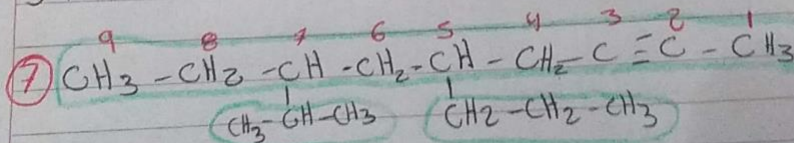 9 8 7 6 5 4 3 2 1
7 CH3 - CH2 - CH - CH2 - CH - CH2 - C ≡ C - CH3
CH3 - CH - CH3 CH2 - CH2 - CH3